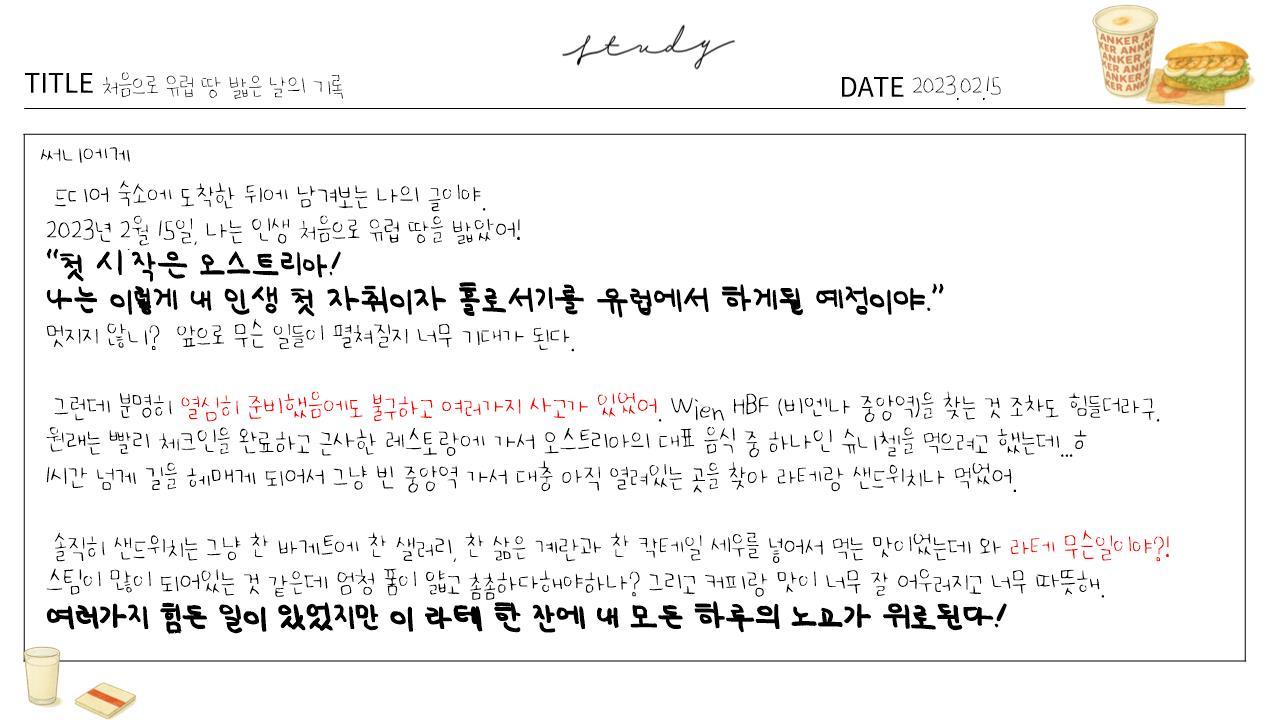 study
TITLE 처음으로 유럽 땅 밟은 날의 기록
DATE 2023.02.15
ANKER AN
KER ANKER
ANKER AN
KER ANKE
ANKER A
KER ANK
써니에게
드디어 숙소에 도착한 뒤에 남겨보는 나의 글이야.
2023년 2월 15일, 나는 인생 처음으로 유럽 땅을 밟았어!
“첫 시작은 오스트리아!
나는 이렇게 내 인생 첫 자취이자 홀로서기를 유럽에서 하게될 예정이야.”
멋지지 않니? 앞으로 무슨 일들이 펼쳐질지 너무 기대가 된다.
그런데 분명히 열심히 준비했음에도 불구하고 여러가지 사고가 있었어. Wien HBF (비엔나 중앙역)을 찾는 것 조차도 힘들더라구.
원래는 빨리 체크인을 완료하고 근사한 레스토랑에 가서 오스트리아의 대표 음식 중 하나인 슈니첼을 먹으려고 했는데...ㅎ
1시간 넘게 길을 헤매게 되어서 그냥 빈 중앙역 가서 대충 아직 열려있는 곳을 찾아 라테랑 샌드위치나 먹었어.
솔직히 샌드위치는 그냥 찬 바게트에 찬 샐러리, 찬 삶은 계란과 찬 칵테일 새우를 넣어서 먹는 맛이었는데 와 라테 무슨일이야?!
스팀이 많이 되어있는 것 같은데 엄청 폼이 얇고 촘촘하다해야하나? 그리고 커피랑 맛이 너무 잘 어우러지고 너무 따뜻해.
여러가지 힘든 일이 있었지만 이 라테 한 잔에 내 모든 하루의 노고가 위로된다!